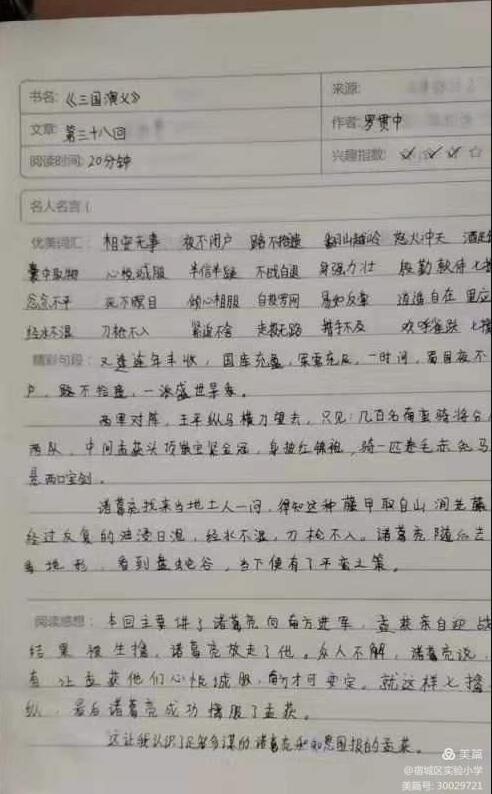 书名: 《三国演义》 来源:
文章: 第三十八回 作者: 罗贯中
阅读时间: 20分钟 兴趣指数: ☆ ☆ ☆ ☆
名人名言(
优美词汇: 相安无事 夜不闭户 路不拾遗 翻山越岭 怒火冲天 酒足
囊中取物 心悦诚服 半信半疑 不战自退 身强力壮 殷勤款待 七擒
忿忿不平 死不瞑目 倾心相服 自投罗网 易如反掌 逍遥自在 里应
经水不湿 刀枪不入 紧追不舍 走投无路 措手不及 欢呼雀跃 七擒
精彩句段: 又逢连年丰收,国库充盈,军需充足,一时间,蜀国夜不
户,路不拾遗,一派盛世景象。
两军对阵,王平纵马横刀望去,只见:几百名南蛮骑将分
两队,中间孟获头顶嵌宝紫金冠,身披红锦袍,骑一匹卷毛赤兔马
悬两口宝剑。
诸葛亮找来当地土人一问,得知这种藤甲取自山涧老藤
经过反复的油浸日晒,经水不湿,刀枪不入。诸葛亮随后去
地形,看到盘蛇谷,当下便有了平蛮之策。
阅读感想: 本回主要讲了诸葛亮向南方进军,孟获亲自迎战
结果被生擒。诸葛亮放走了他。众人不解,诸葛亮说,
有让孟获他们心悦诚服,南方才可安定。就这样七擒
纵,最后诸葛亮成功擒服了孟获。
这让我认识了足智多谋的诸葛亮和知恩图报的孟获。
美篇
@宿城区实验小学
美篇号: 30029721